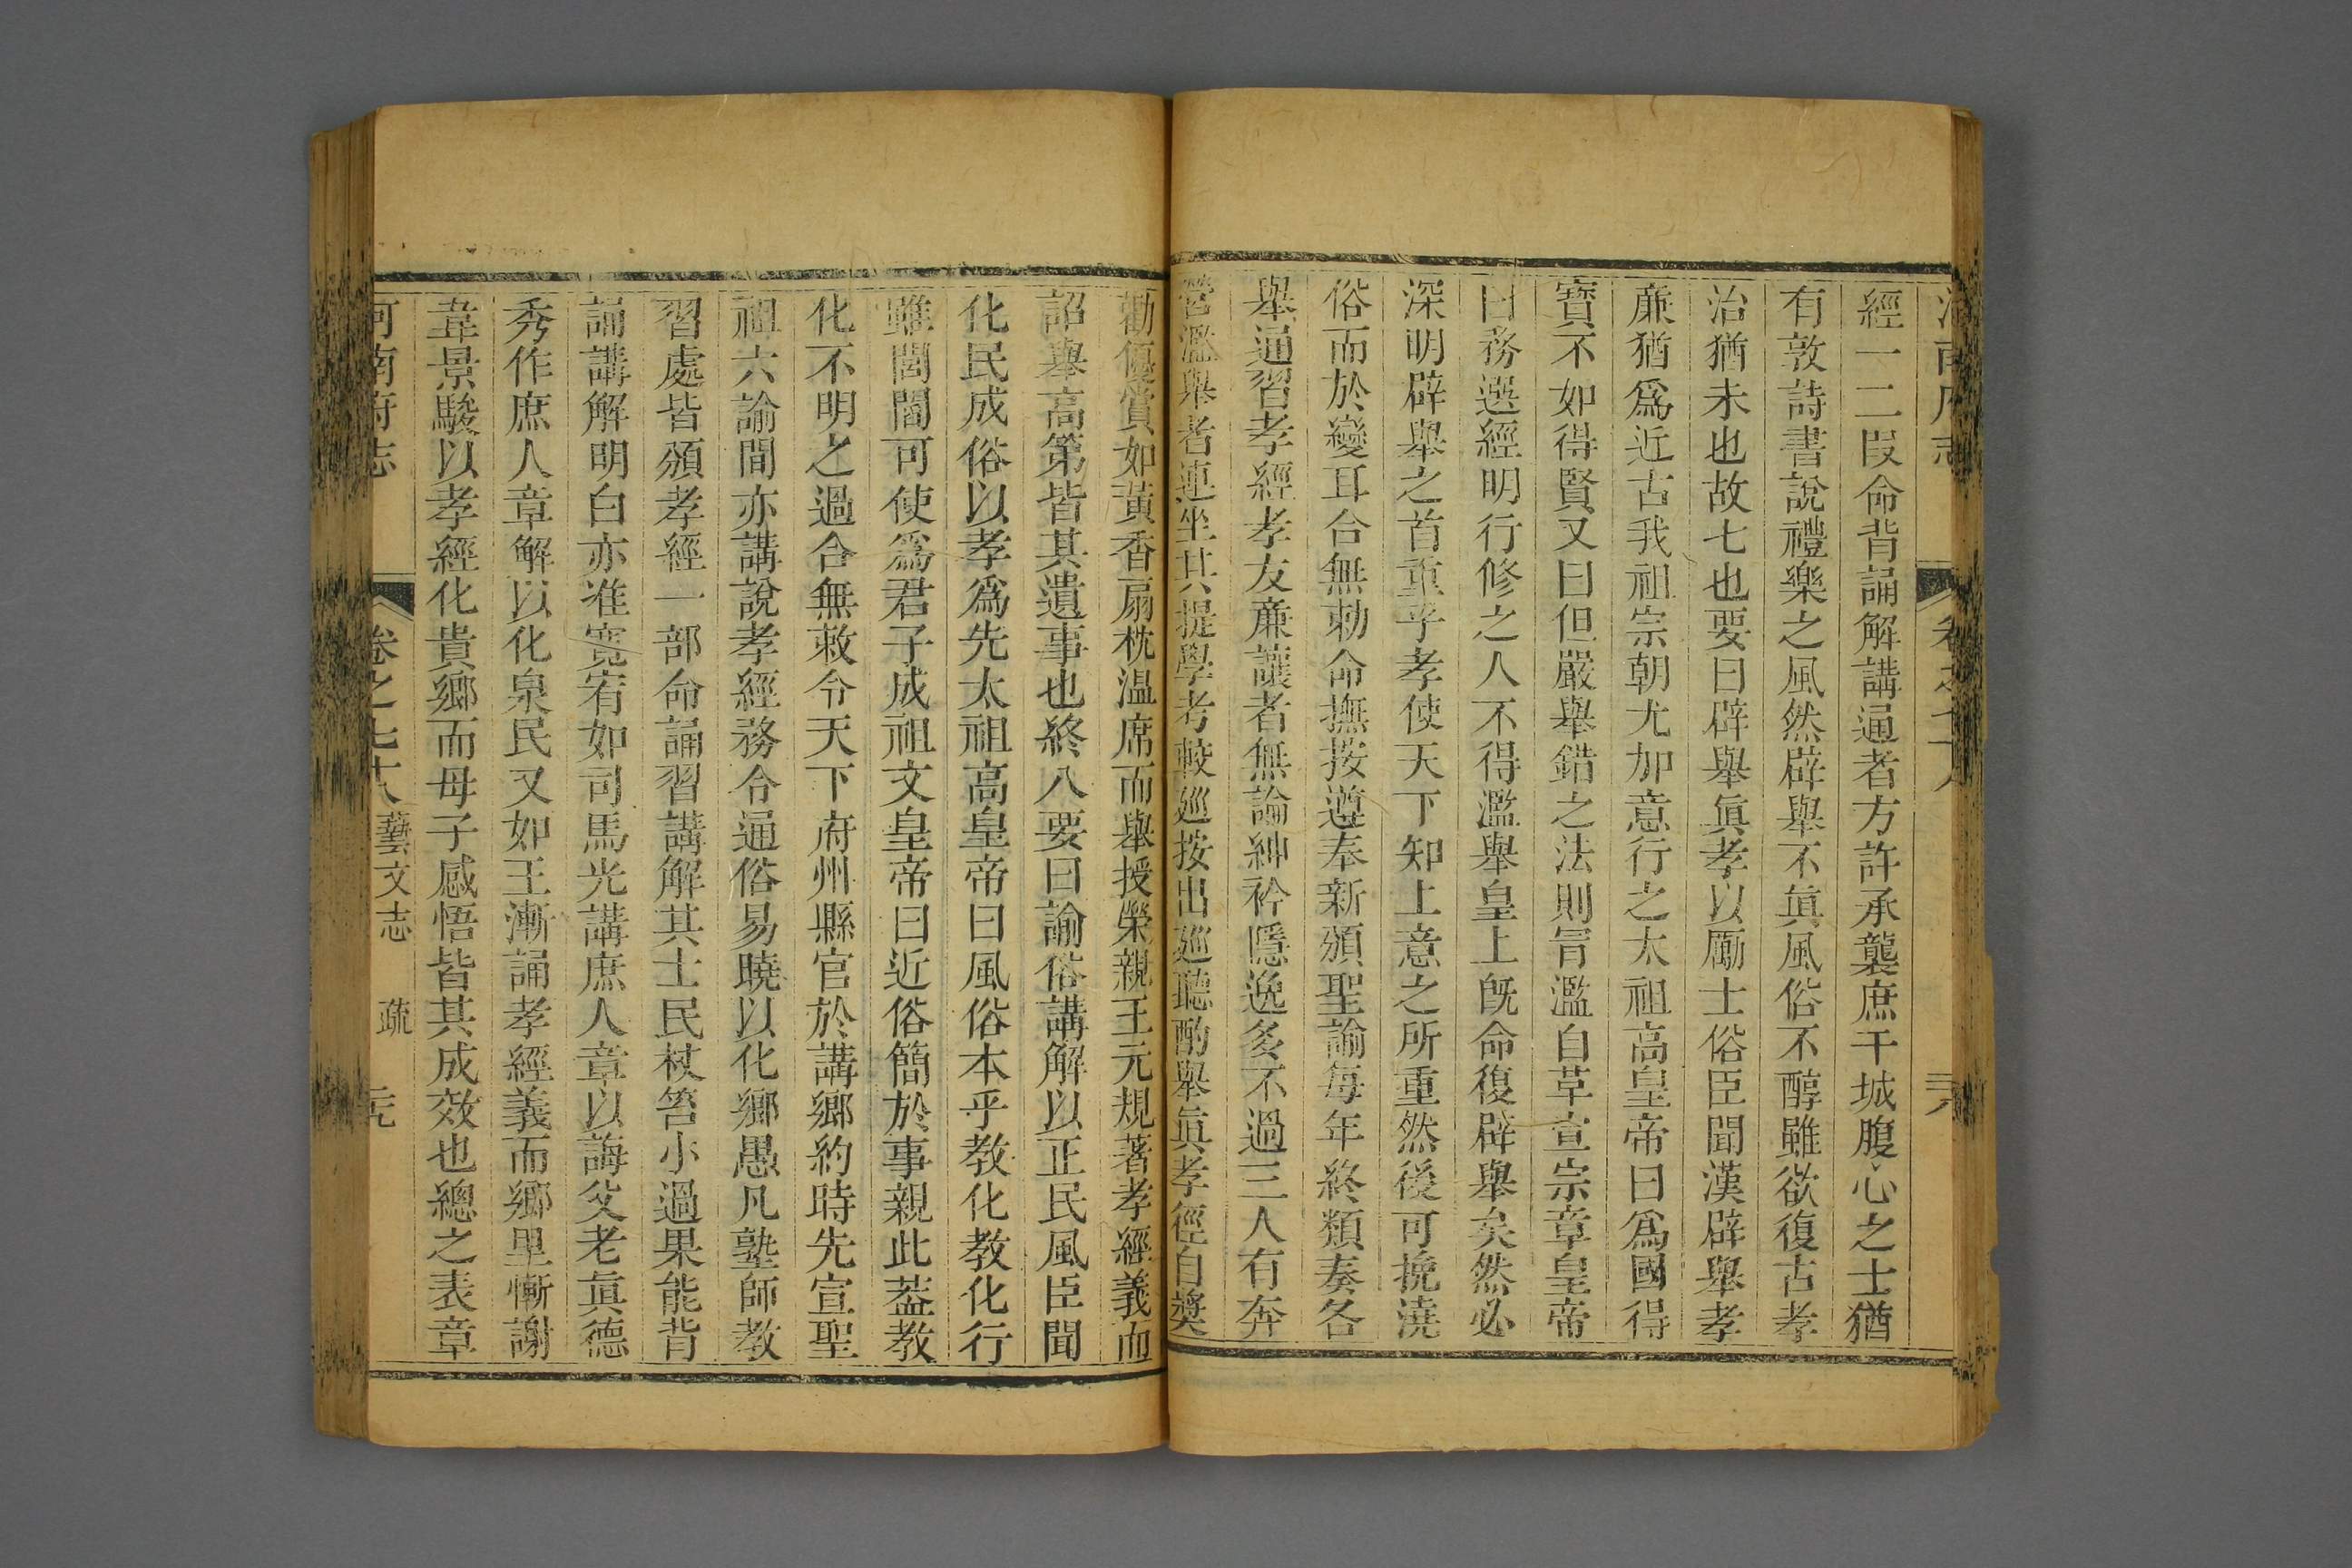 經一二段命背誦解講通者方許承襲庶干城腹心之士猶
有敦詩書說禮樂之風然辟舉不眞風俗不醇雖欲復古孝
治猶未也故七也要曰辟舉眞孝以勵士俗臣聞漢辟舉孝
廉猶爲近古我祖宗朝尤加意行之太祖高皇帝曰爲國得
寳不如得賢又曰但嚴舉錯之法則冐濫自草宣宗章皇帝
曰務選經明行修之人不得濫舉皇上旣命復辟舉矣然必
深明辟舉之首重乎孝使天下知上意之所重然後可挽澆
俗而於變耳合無勅命撫按遵奉新頒聖諭每年終類奏各
舉通習孝經孝友亷讓者無論紳衿隱逸多不過三人有奔
營濫舉者連坐其提學考較廵按出廵聽酌舉眞孝徑自奬
勸優賞如黃香扇枕温席而舉授榮親王元規著孝經義而
詔舉高第皆其遺事也終八要曰諭俗講解以正民風臣聞
化民成俗以孝爲先太祖高皇帝曰風俗本乎教化教化行
雖閭閻可使爲君子成祖文皇帝曰近俗簡於事親此葢教
化不明之過合無敕令天下府州縣官於講鄉約時先宣聖
祖六諭間亦講說孝經務令通俗易曉以化鄉愚凡塾師教
習處皆頒孝經一部命誦習講解其士民杖笞小過果能背
誦講解明白亦准寬宥如司馬光講庶人章以誨父老眞德
秀作庶人章解以化泉民又如王漸誦孝經義而鄉里慚謝
韋景駿以孝經化貴鄉而母子感悟皆其成效也總之表章
河南府志 卷之七十八 藝文志 疏 三九